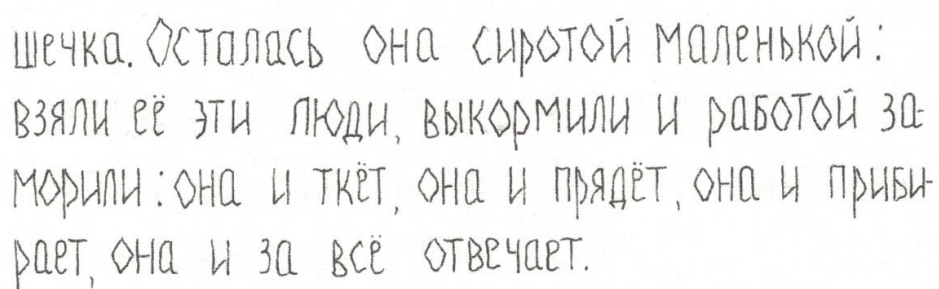 шечка. Осталась она сиротой маленькой:
взяли её эти люди, выкормили и работой за-
морили: она и ткёт, она и прядёт, она и приби-
рает, она и за всё отвечает.